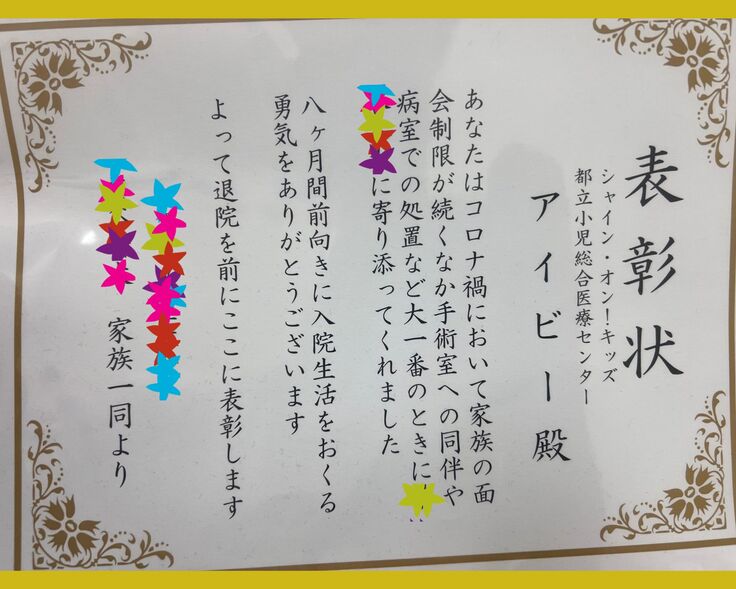 表彰状
シャイン・オン!キッズ
都立小児総合医療センター
アイビー殿
あなたはコロナ禍において家族の面
会制限が続くなか手術室への同伴や
病室での処置など大一番のときに
に寄り添ってくれました
八ヶ月間前向きに入院生活をおくる
勇気をありがとうございます
よって退院を前にここに表彰します
家族一同より